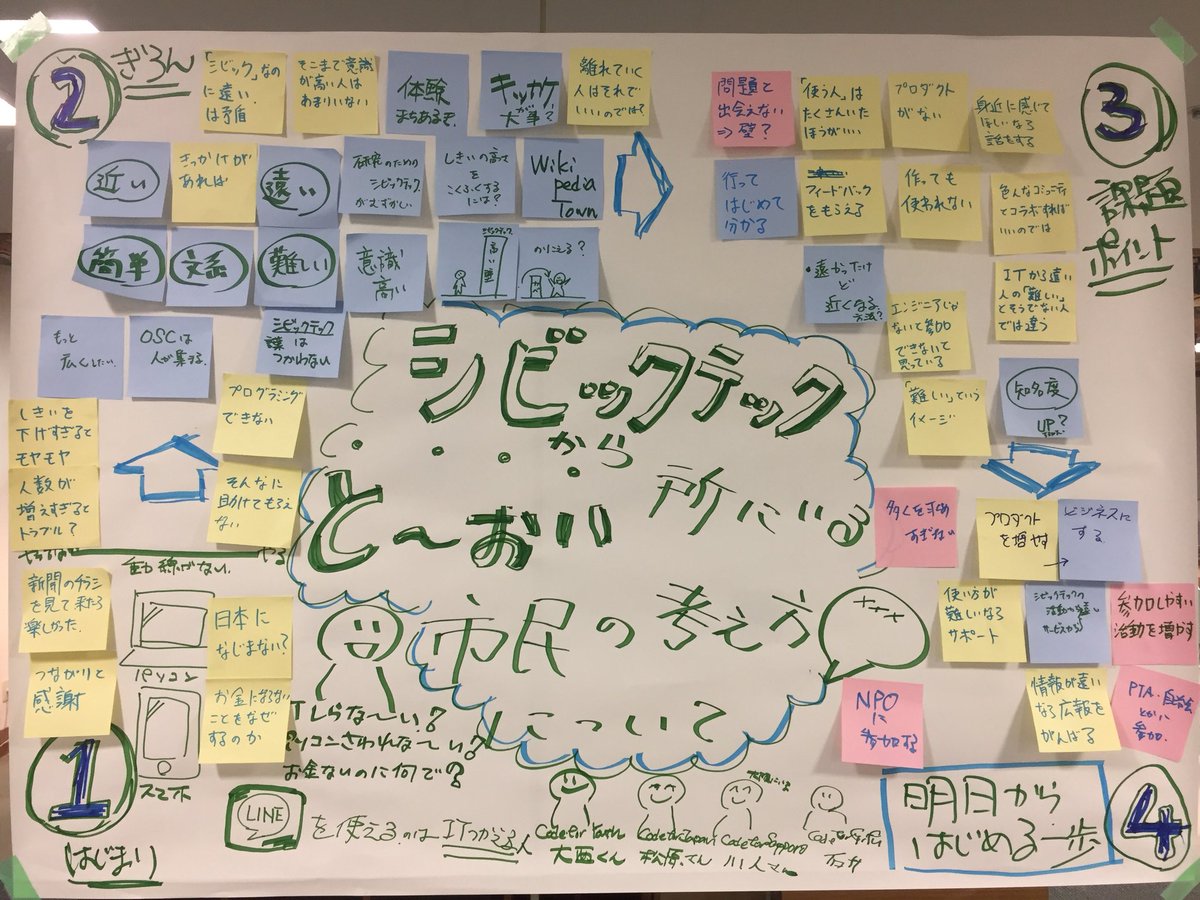 2
ぎろん
「シビック」なの
に遠い
は矛盾
そこまで意識
が高い人は
あまりいない
体験
まちあるき
キッカケ
が大事?
離れていく
人はそれで
いいのでは?
近い
きっかけが
あれば
遠い
研究のための
シビックテック
がむずかしい
しきいの高さ
を
こくふくする
には?
Wiki
pedia
Town
簡単
文系
難しい
意識
高い
シビックテック
高い壁
かりにえる?
もっと
広くしたい
OSCは
人が集まる
シビックテック
つかわない
3
課題
ポイント
問題と
出会えない
⇒ 壁?
「使う人」は
たくさんいた
ほうがいい
プロダクト
がない
身近に感じて
ほしいなら
話をする
行って
はじめて
分かる
フィードバック
をもらえる
作っても
使われない
色んなコミュニティ
とコラボすれば
いいのでは
・遠かったけ
ど
近くなる
方法?
エンジニアじゃ
ないと参加
できないと
思っている
ITから遠い
人の「難しい」
とそうでない人
では違う
「難しい」っていう
イメージ
知名度
UP?
シビックテック
から
と〜おい
所にいる
市民の考え方
について
プログラミング
できない
そんなに
助けてもらえ
ない
しきいを
下げすぎると
モヤモヤ
人数が
増えすぎると
トラブル?
やる
動機がない
新聞のチラシ
を見て来たら
楽しかった
つながりと
感謝
パソコン
スマホ
日本に
なじまない?
お金にならない
ことをなぜ
するのか
1
はじまり
ITしらな〜い?
パソコンさわれな〜い?
お金ないのに何で?
LINE
を使えるのはITつかえる人
Code for Youth
大西くん
Code for Japan
松原さん
Code for Sapporo
川人さん
多くを求め
すぎない
プロダクト
を増やす
ビジネスに
する
使い方が
難しいなら
サポート
シビックテックの
サービスから
参加しやすい
活動を増やす
NPO
に
参加する
情報が遠い
なら広報を
がんばる
PTA・自治会
とかに
参加
明日から
はじめる一歩
4